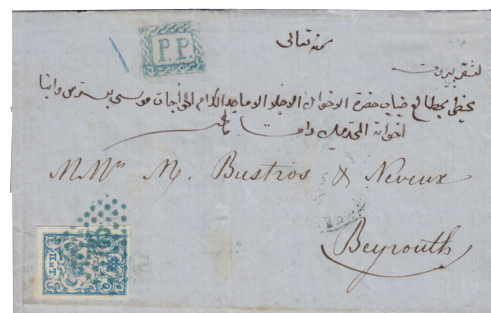 P.P.
بمنه تعالى
لثغر بيروت
يحظى بمطالع جناب حضرة الاخوان الاجلا الاماجد الكرام الخواجات موسى بسترس
اخوان المحترمين
MMrs M. Bustros & Neveux
Beyrouth